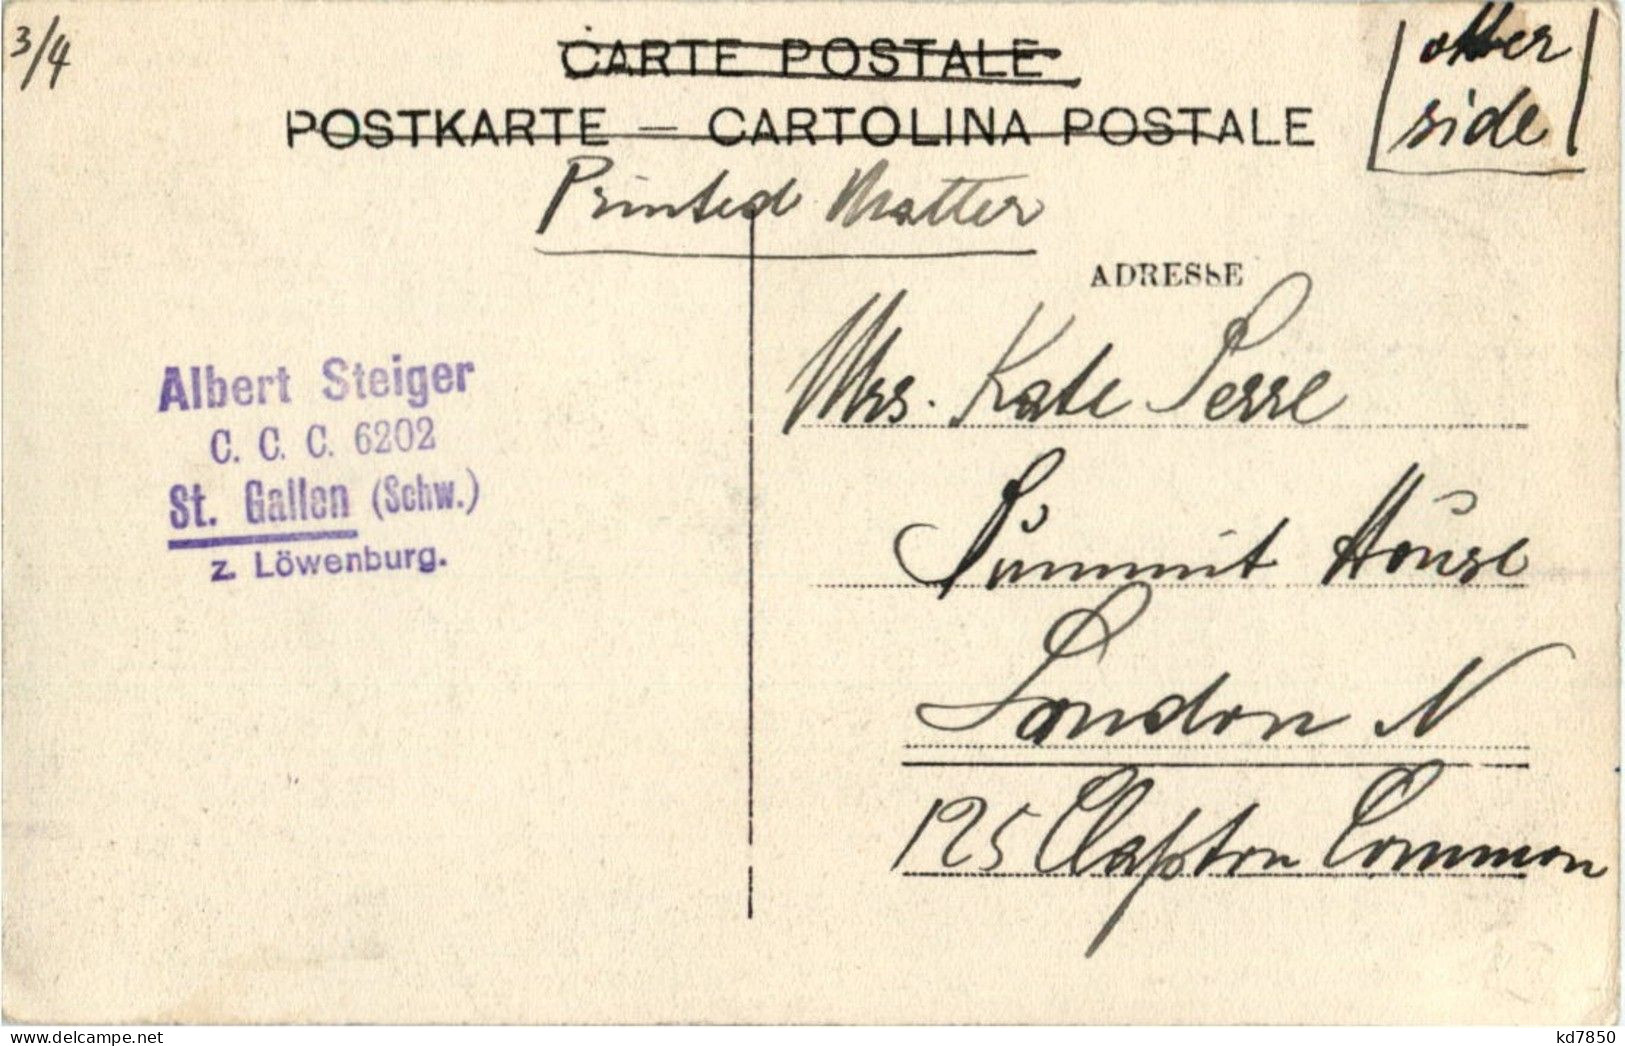 3/4
CARTE POSTALE
other
side
POSTKARTE — CARTOLINA POSTALE
Printed Matter
ADRESSE
Albert Steiger
C. C. C. 6202
St. Gallen (Schw.)
z. Löwenburg.
Mrs. Kate Perre
Summit House
London N
125 Clapton Common
www.delcampe.net
kd7850